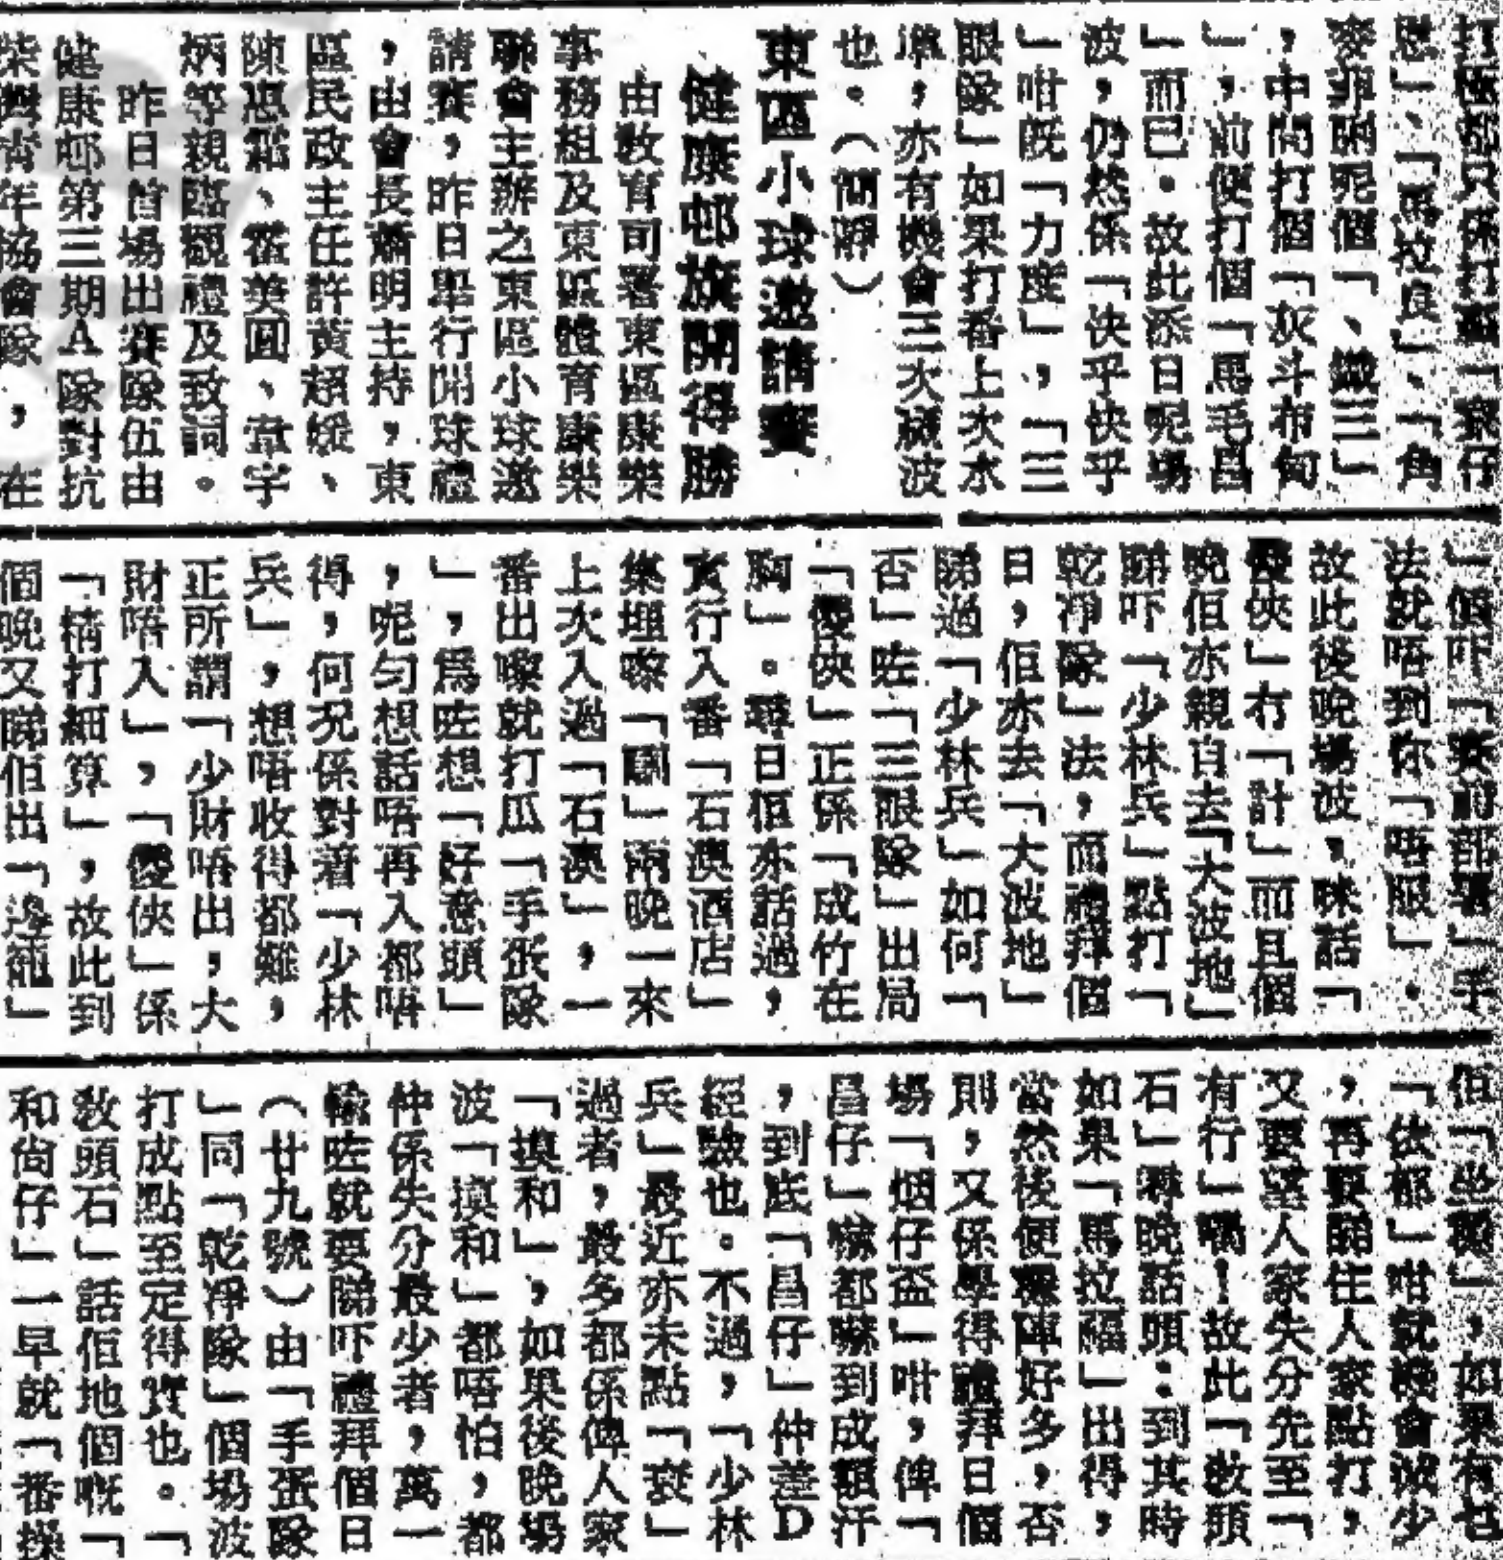 打極都只係打
」、「馬拉良」、「角
麥菲明呢個「、鐵三」
，中間打個「灰斗布甸
」，前便打個「馬毛昌
」而已。故此添日呢場
波，仍然係「快乎快乎
」咁既「力度」，「三
眼隊」如果打番上次水
準，亦有機會三次藏波
也。（簡靜）
東區小球邀請賽
健康邨旗開得勝
由教育司署東區康樂
事務組及東區體育康樂
聯會主辦之東區小球邀
請賽，昨日舉行開球禮
，由會長蕭明主持，東
區民政主任許黃超媛、
陳惠霜、霍美圓、韋宇
炳等親臨觀禮及致詞。
昨日首場出賽隊伍由
健康邨第三期A隊對抗
柴灣青年協會隊，在
」個吓「賣
法就唔到你「唔服」。
故此後晚場波，咪話「
傻俠」冇「計」而且個
晚佢亦親自去「大波地」
睇吓「少林兵」點打「
乾淨隊」法，而禮拜個
日，佢亦去「大波地」
睇過「少林兵」如何「
否」咗「三眼隊」出局
「傻俠」正係「成竹在
胸」。尋日佢亦話過，
實行入番「石澳酒店」
集埋嚟「關」兩晚一來
上次入過「石澳」，一
番出嚟就打瓜「手蛋隊
」，為咗想「好意頭」
，呢勻想話唔再入都唔
得，何況係對着「少林
兵」，想唔收得都難，
正所謂「少財唔出，大
財唔入」，「傻俠」係
「精打細算」，故此到
個晚又睇佢出「邊瓣」
但「坐礙」，如果有乜
「依郁」咁就機會減少
，再要睇住人家點打，
又要望人家失分先至「
有行」喎！故此「教頭
石」尋晚話頭：到其時
如果「馬拉福」出得，
當然後便穩陣好多，否
則，又係學得禮拜日個
場「烟仔盃」咁，俾「
昌仔」嚇都嚇到成額汗
，到底「昌仔」仲差D
經驗也。不過，「少林
兵」最近亦未點「衰」
過者，最多都係俾人家
「摸和」，如果後晚場
波「摸和」都唔怕，都
仲係失分最少者，萬一
輸咗就要睇吓禮拜個日
（廿九號）由「手蛋隊
」同「乾淨隊」個場波
打成點至定得實也。「
教頭石」話佢地個嘅「
和尚仔」一早就「番操